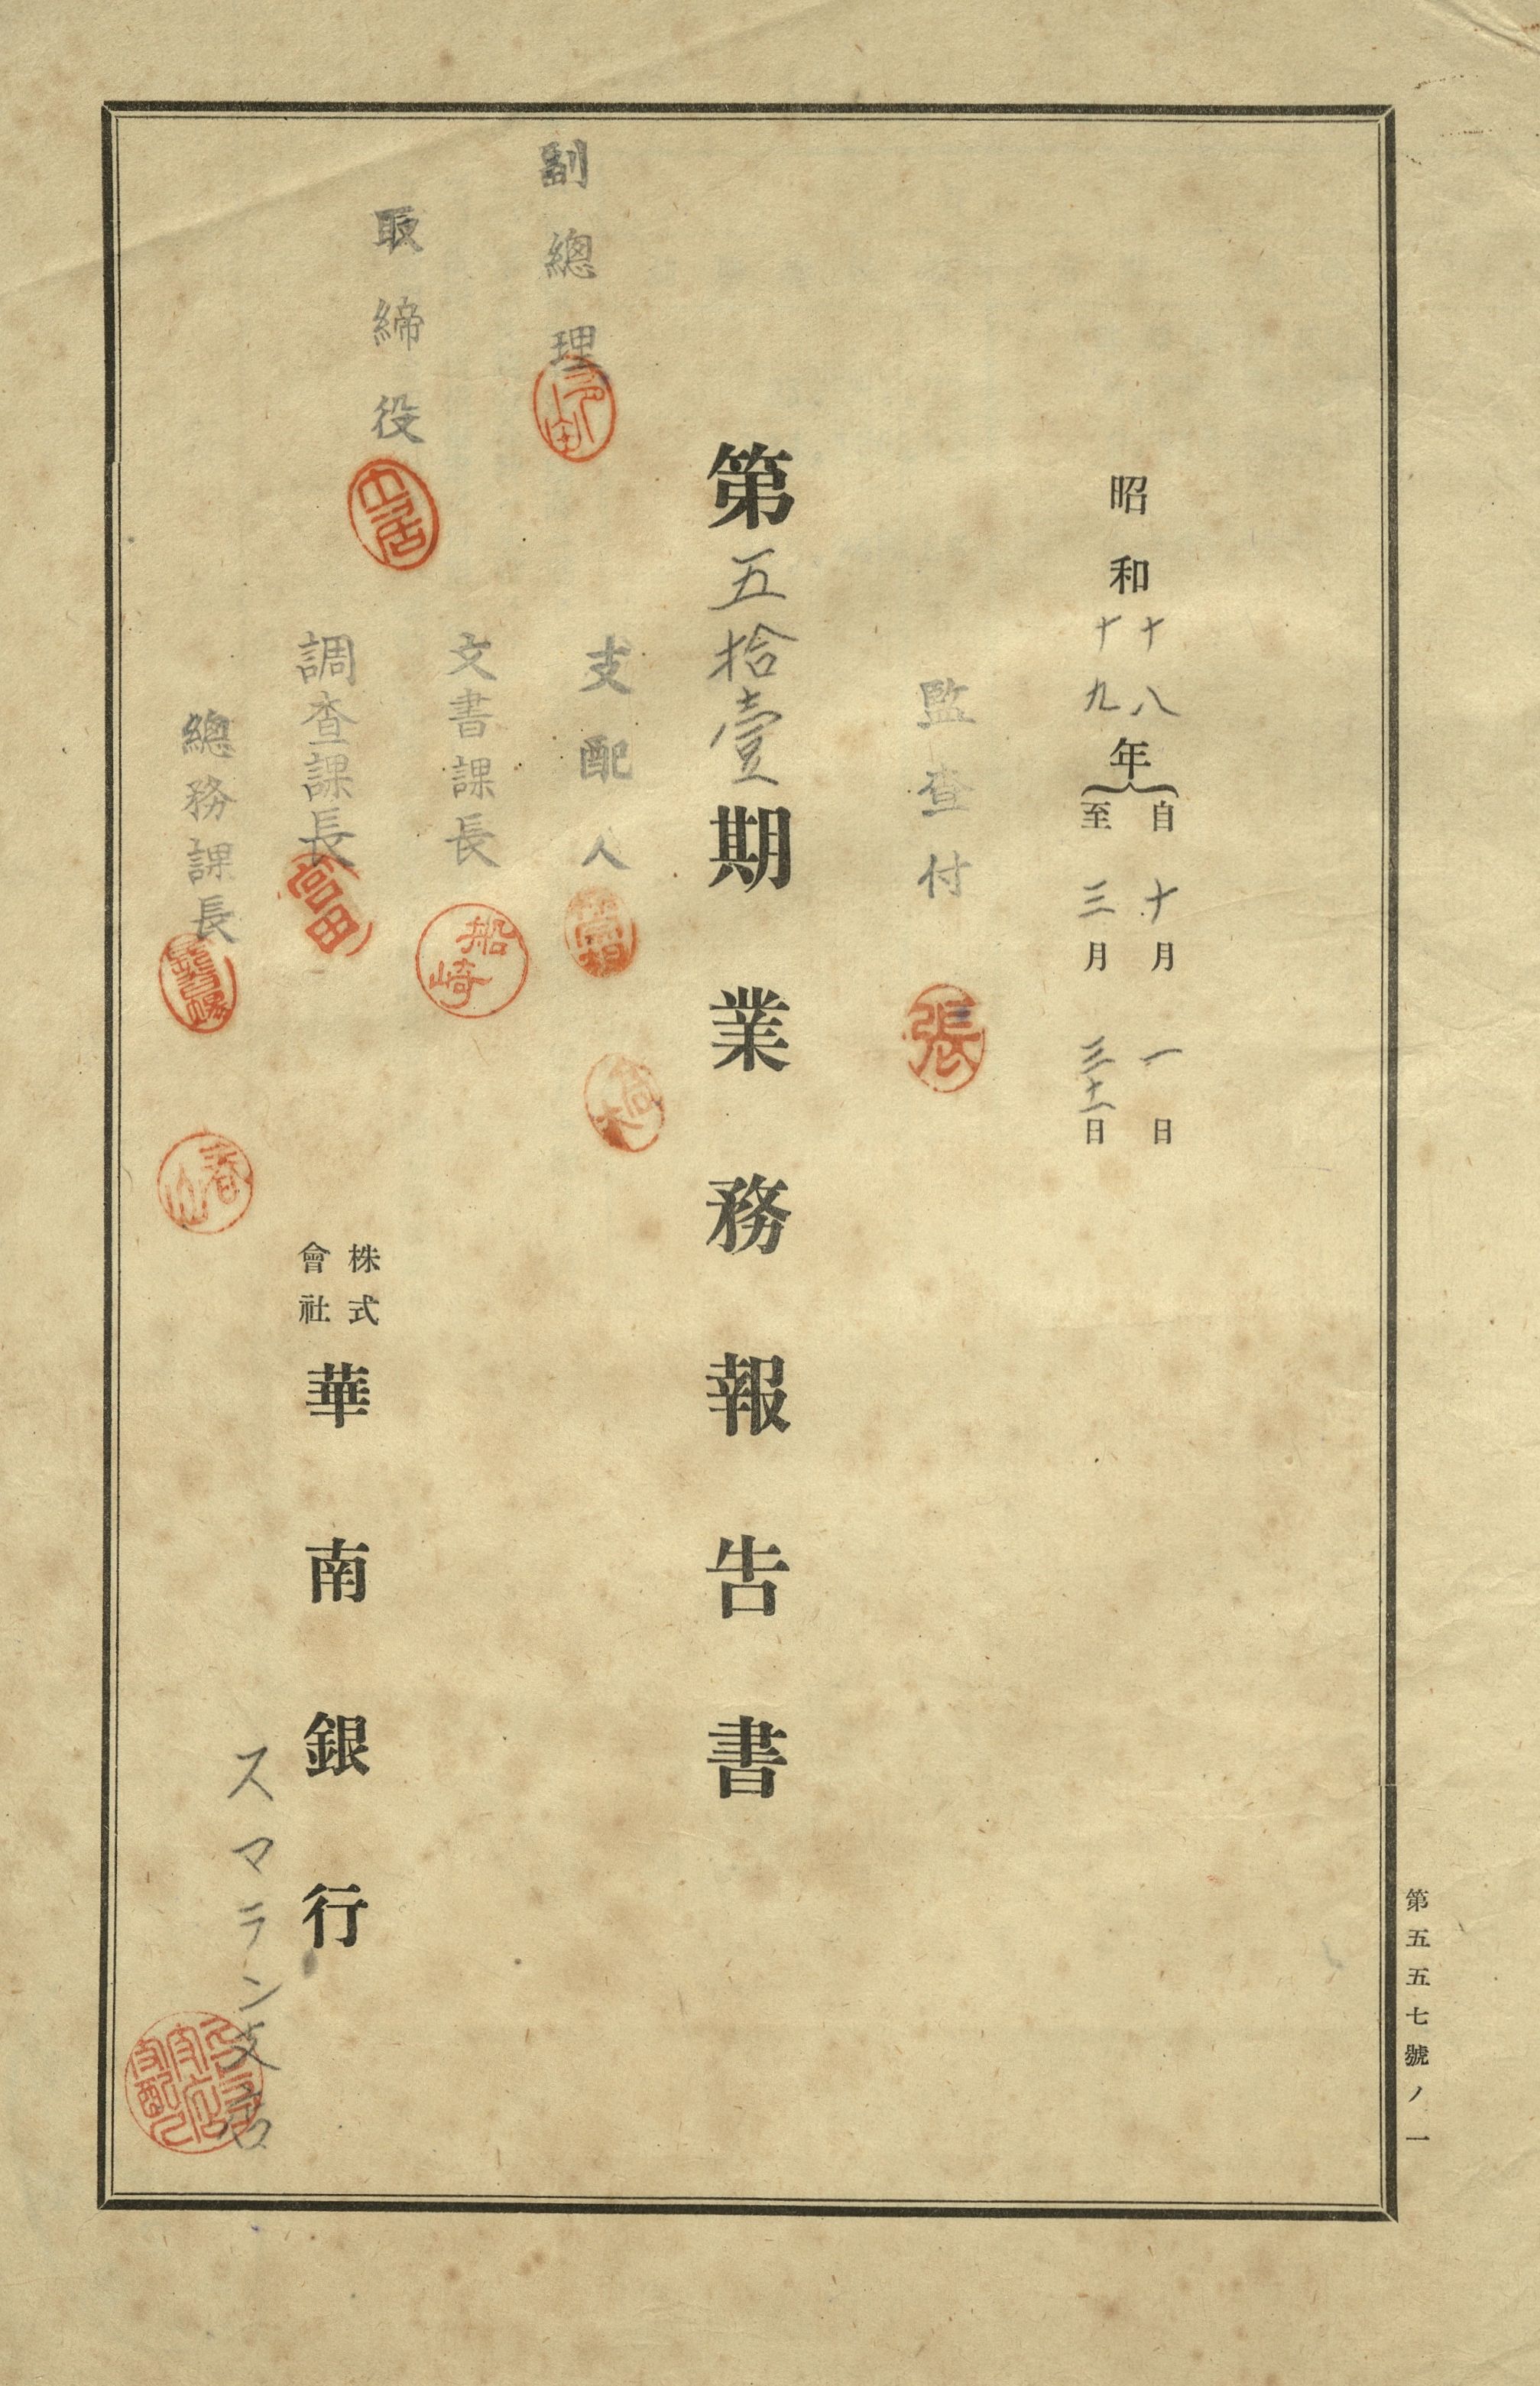 第五五七號ノ一
昭和
十八
十九
年
自 十月 一日
至 三月 三十一日
監査付
張
第五拾壹期業務報告書
副總理
支配人
取締役
文書課長
船崎
調査課長
富田
總務課長
春山
株式會社
華南銀行
スマラン支店